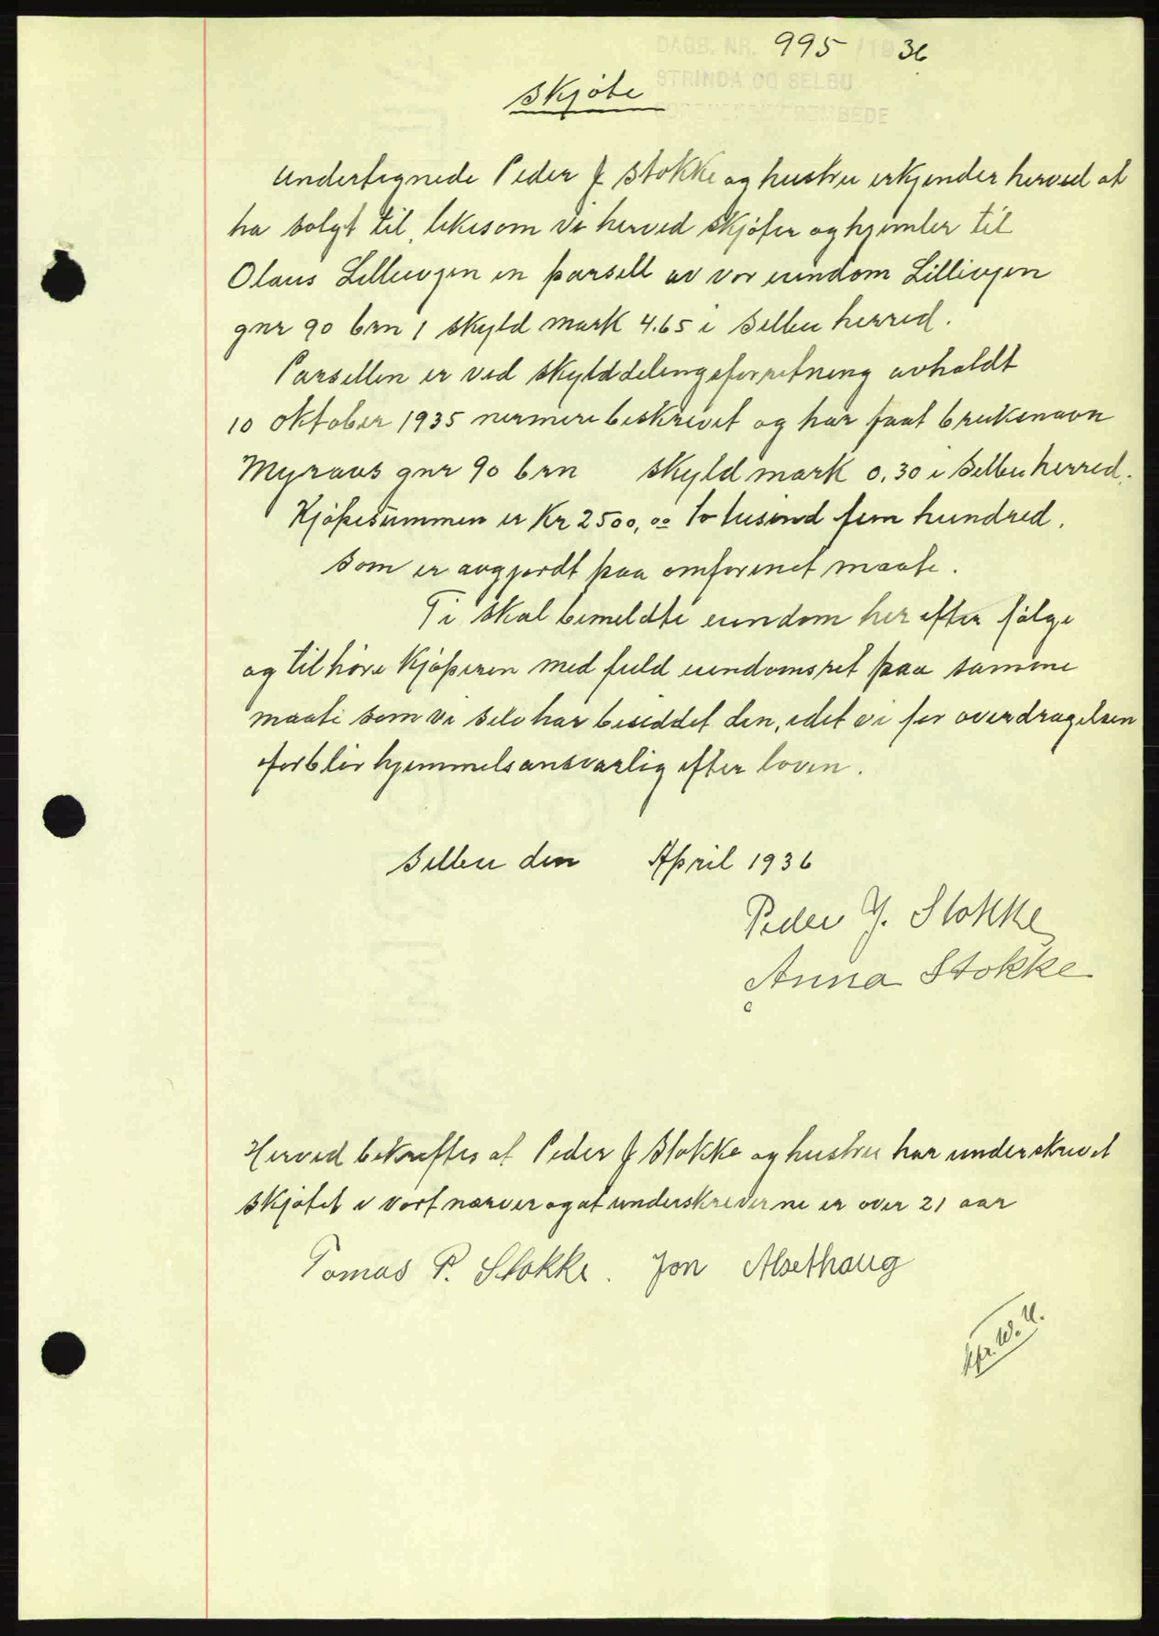 DAGB. NR. 995 /1936
STRINDA OG SELBU
SORENSKRIVEREMBEDE
Skjøte
Undertegnede Peder J Stokke og hustru erkjender herved at
ha solgt til, likesom vi herved skjøter og hjemler til
Olaus Lillevjen en parsell av vor eiendom Lillevjen
gnr 90 brn 1 skyld mark 4.65 i Selbu herred.
Parsellen er ved skylddelingsforretning avholdt
10 oktober 1935 nermere beskrevet og har faat bruksnavn
Myraas gnr 90 brn skyld mark 0.30 i Selbu herred.
Kjøpesummen er Kr 2500,00 To tusind fem hundred.
som er avgjordt paa omforenet maate.
Ti skal bemeldte eiendom her efter følge
og tilhøre kjøperen med fuld eiendomsret paa samme
maate som vi selv har besiddet den, idet vi for overdragelsen
forblir hjemmelsansvarlig efter loven.
Selbu den April 1936
Peder J. Stokke
Anna Stokke
Herved bekreftes at Peder J Stokke og hustru har underskrevet
skjøtet i vort nærver og at underskreverne er over 21 aar
Tomas P. Stokke. Jon Alsethaug